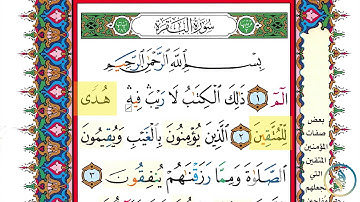 سُورَةُ الْبَقَرَةِ
بِسْمِ اللَّهِ الرَّحْمَٰنِ الرَّحِيمِ
الٓمٓ ١ ذَٰلِكَ الْكِتَٰبُ لَا رَيْبَ فِيهِ هُدًى
لِّلْمُتَّقِينَ ٢ الَّذِينَ يُؤْمِنُونَ بِالْغَيْبِ وَيُقِيمُونَ
الصَّلَوٰةَ وَمِمَّا رَزَقْنَٰهُمْ يُنفِقُونَ ٣
بعض
صفات
المؤمنين
المتقين
التي
تجعلهم